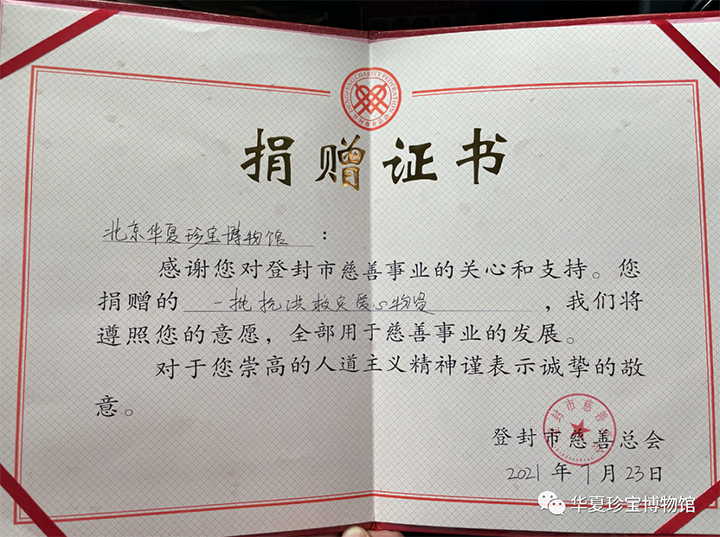 DENGFENG CHARITY FEDERATION
捐赠证书
北京华夏珍宝博物馆:
感谢您对登封市慈善事业的关心和支持。您
捐赠的一批抗洪救灾爱心物资,我们将
遵照您的意愿,全部用于慈善事业的发展。
对于您崇高的人道主义精神谨表示诚挚的敬
意。
登封市慈善总会
2021年7月23日
华夏珍宝博物馆